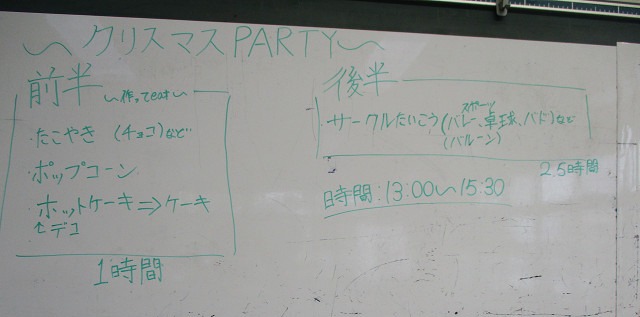 ～クリスマスPARTY～
前半 ～作ってeat～
・たこやき (チョコ)など
・ポップコーン
・ホットケーキ⇒ケーキ
↑デコ
1時間
後半
スポーツ
・サークルたいこう(バレー、卓球、バド)など
(バルーン)
2.5時間
日時間:13:00～15:30